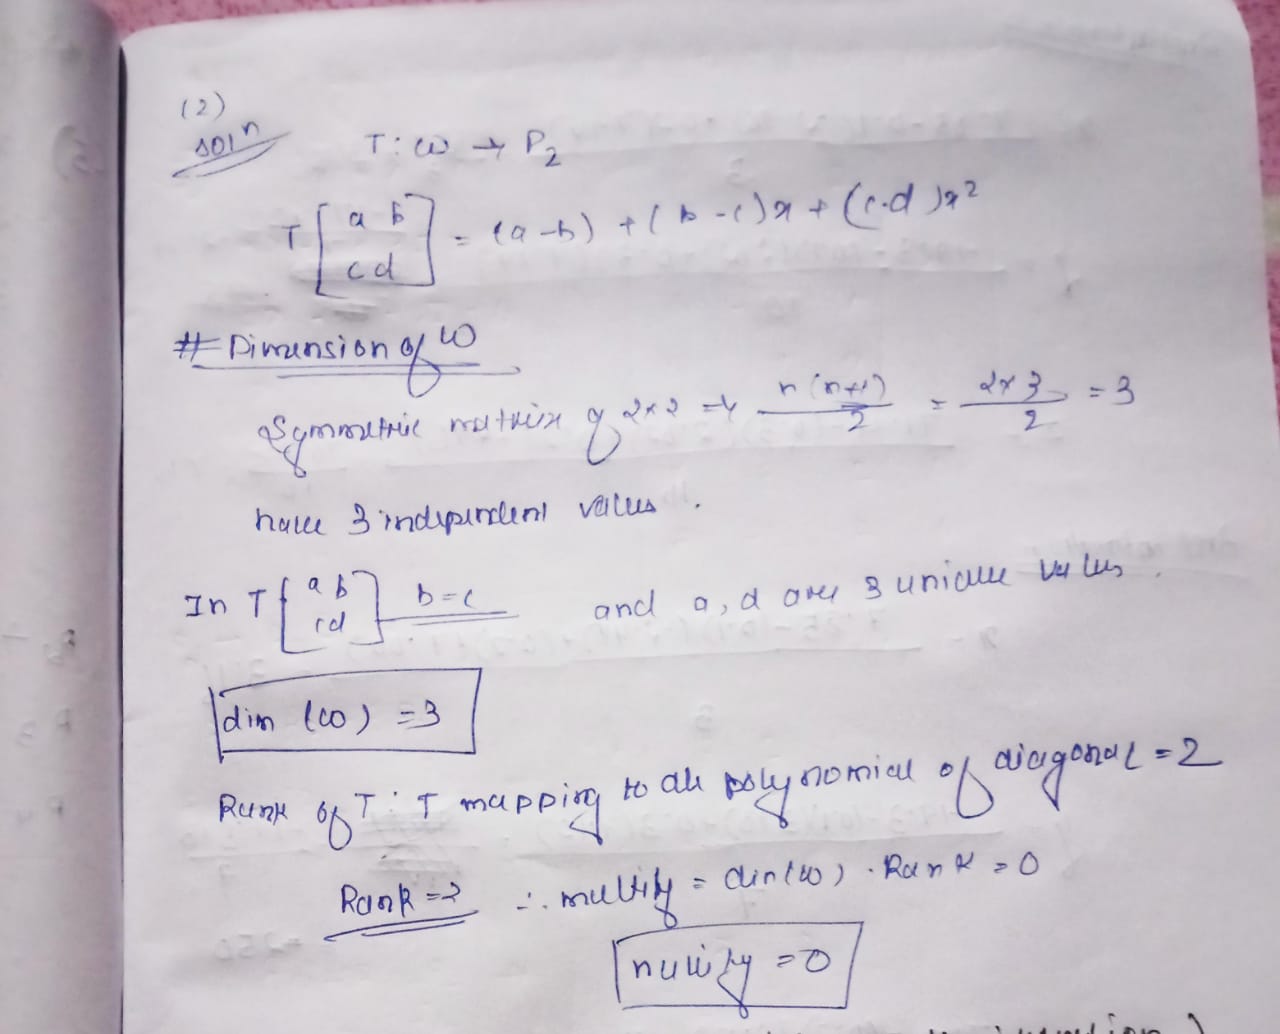 (2)
soln T: W → P2
T [a b
c d] = (a-b) + (b-c)x + (c-d)x²
# Dimension of W
Symmetric matrix of 2×2 → n(n+1)/2 = 2×3/2 = 3
have 3 independent values.
In T [a b
c d] b=c and a, d are 3 unique values.
dim (W) = 3
Rank of T: T mapping to all polynomial of diagonal = 2
Rank = 3 ∴ nullity = dim(W) - Rank = 0
nullity = 0